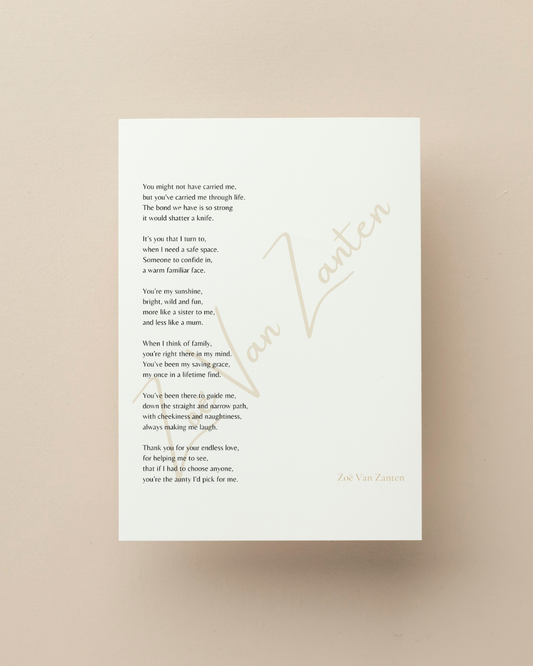 You might not have carried me,
but you've carried me through life.
The bond we have is so strong
it would shatter a knife.
It's you that I turn to,
when I need a safe space.
Someone to confide in,
a warm familiar face.
You're my sunshine,
bright, wild and fun,
more like a sister to me,
and less like a mum.
When I think of family,
you're right there in my mind.
You've been my saving grace,
my once in a lifetime find.
You've been there to guide me,
down the straight and narrow path,
with cheekiness and naughtiness,
always making me laugh.
Thank you for your endless love,
for helping me to see,
that if I had to choose anyone,
you're the aunty I'd pick for me.
Zoë Van Zanten
Zoë Van Zanten